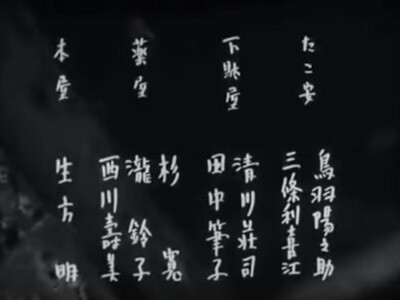 たこ安
鳥羽陽之助
三條利喜江
下駄屋
清川莊司
田中筆子
藥屋
杉寛
瀧鈴子
西川壽美
本屋
生方明